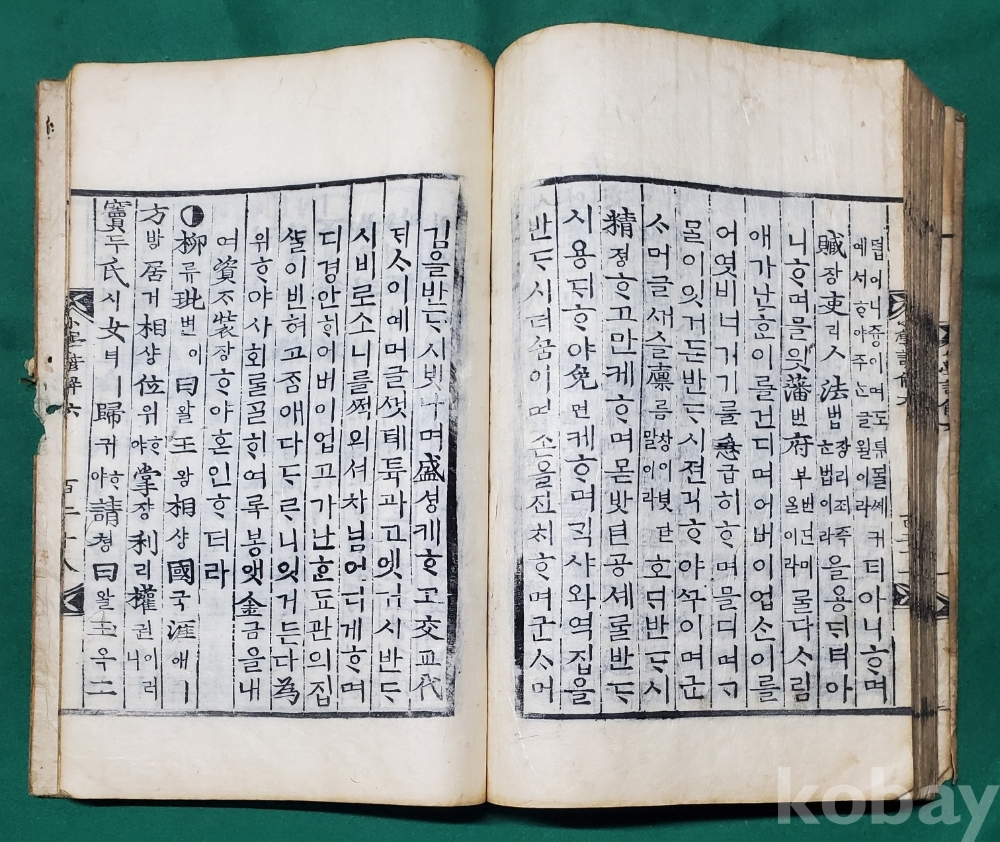 티아니ᄒᆞ며
에서ᄒᆞ야주ᄂᆞᆫ글월이라
贓장吏리ㅅ法법을용티아
니ᄒᆞ며믈읫藩번府부ᄅᆞᆯ다ᄉᆞ림
애가난ᄒᆞᆫ이를건디며어버이업슨이를
어엿비너기ᄅᆞᆯ急급히ᄒᆞ며믈디며ᄀᆞ
ᄆᆞᆯ이잇거든반ᄃᆞ시젼긔ᄒᆞ야ᄭᅮ이며군
ᄉᆞ머글廩름호ᄃᆡ반ᄃᆞ시
精졍ᄒᆞ고만케ᄒᆞ며몯밧ᄐᆞᆫ공셰ᄅᆞᆯ반ᄃᆞ
시용ᄃᆡᄒᆞ야免면케ᄒᆞ며ᄀᆡᆨ샤와역집을
반ᄃᆞ시더숨이며손을잔치ᄒᆞ며군ᄉᆞ머
김을반ᄃᆞ시빗나며盛셩케ᄒᆞ고交교代
ᄃᆡㅅ이예머글것
시비로소니를적의셔차님어디게ᄒᆞ며
디경안ᄒᆡ어버이업고가난ᄒᆞᆫ됴관의집
ᄯᆞᆯ이빈혀고잠애다ᄃᆞᄅᆞ니잇거든다為
위ᄒᆞ야사회ᄅᆞᆯᄀᆞᆯᄒᆡ여록봉앳金금을내
여資ᄌᆞ裝장ᄒᆞ야혼인ᄒᆞ더라
柳류玭변이曰왈王왕相샹國국涯애ㅣ
方방居거相샹位위ᄒᆞ야掌쟝利리權권이러니
竇두氏시女녀ㅣ歸귀ᄒᆞ야請쳥曰왈玉옥工
小學諺解六
百二十八
kobay